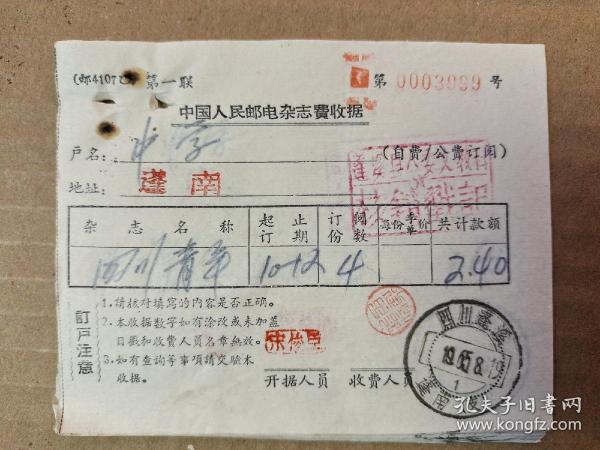 (邮4107乙) 第一联 第 0003099 号
中国人民邮电杂志費收据
戶名: 中学 (自费/公费订阅)
地址: 蓬南
杂志名称 起止订期 订阅份数 每份季单价 共计款额
四川青年 10-12 4 2.40
訂戶注意
1. 請核对填写的内容是否正确。
2. 本收据数字如有涂改或未加盖
日戳和收费人員名章無效。
3. 如有查詢等事項請交驗本
收据。
开据人員 收费人員
四川蓬溪
孔夫子旧书网
www.kongfz.com